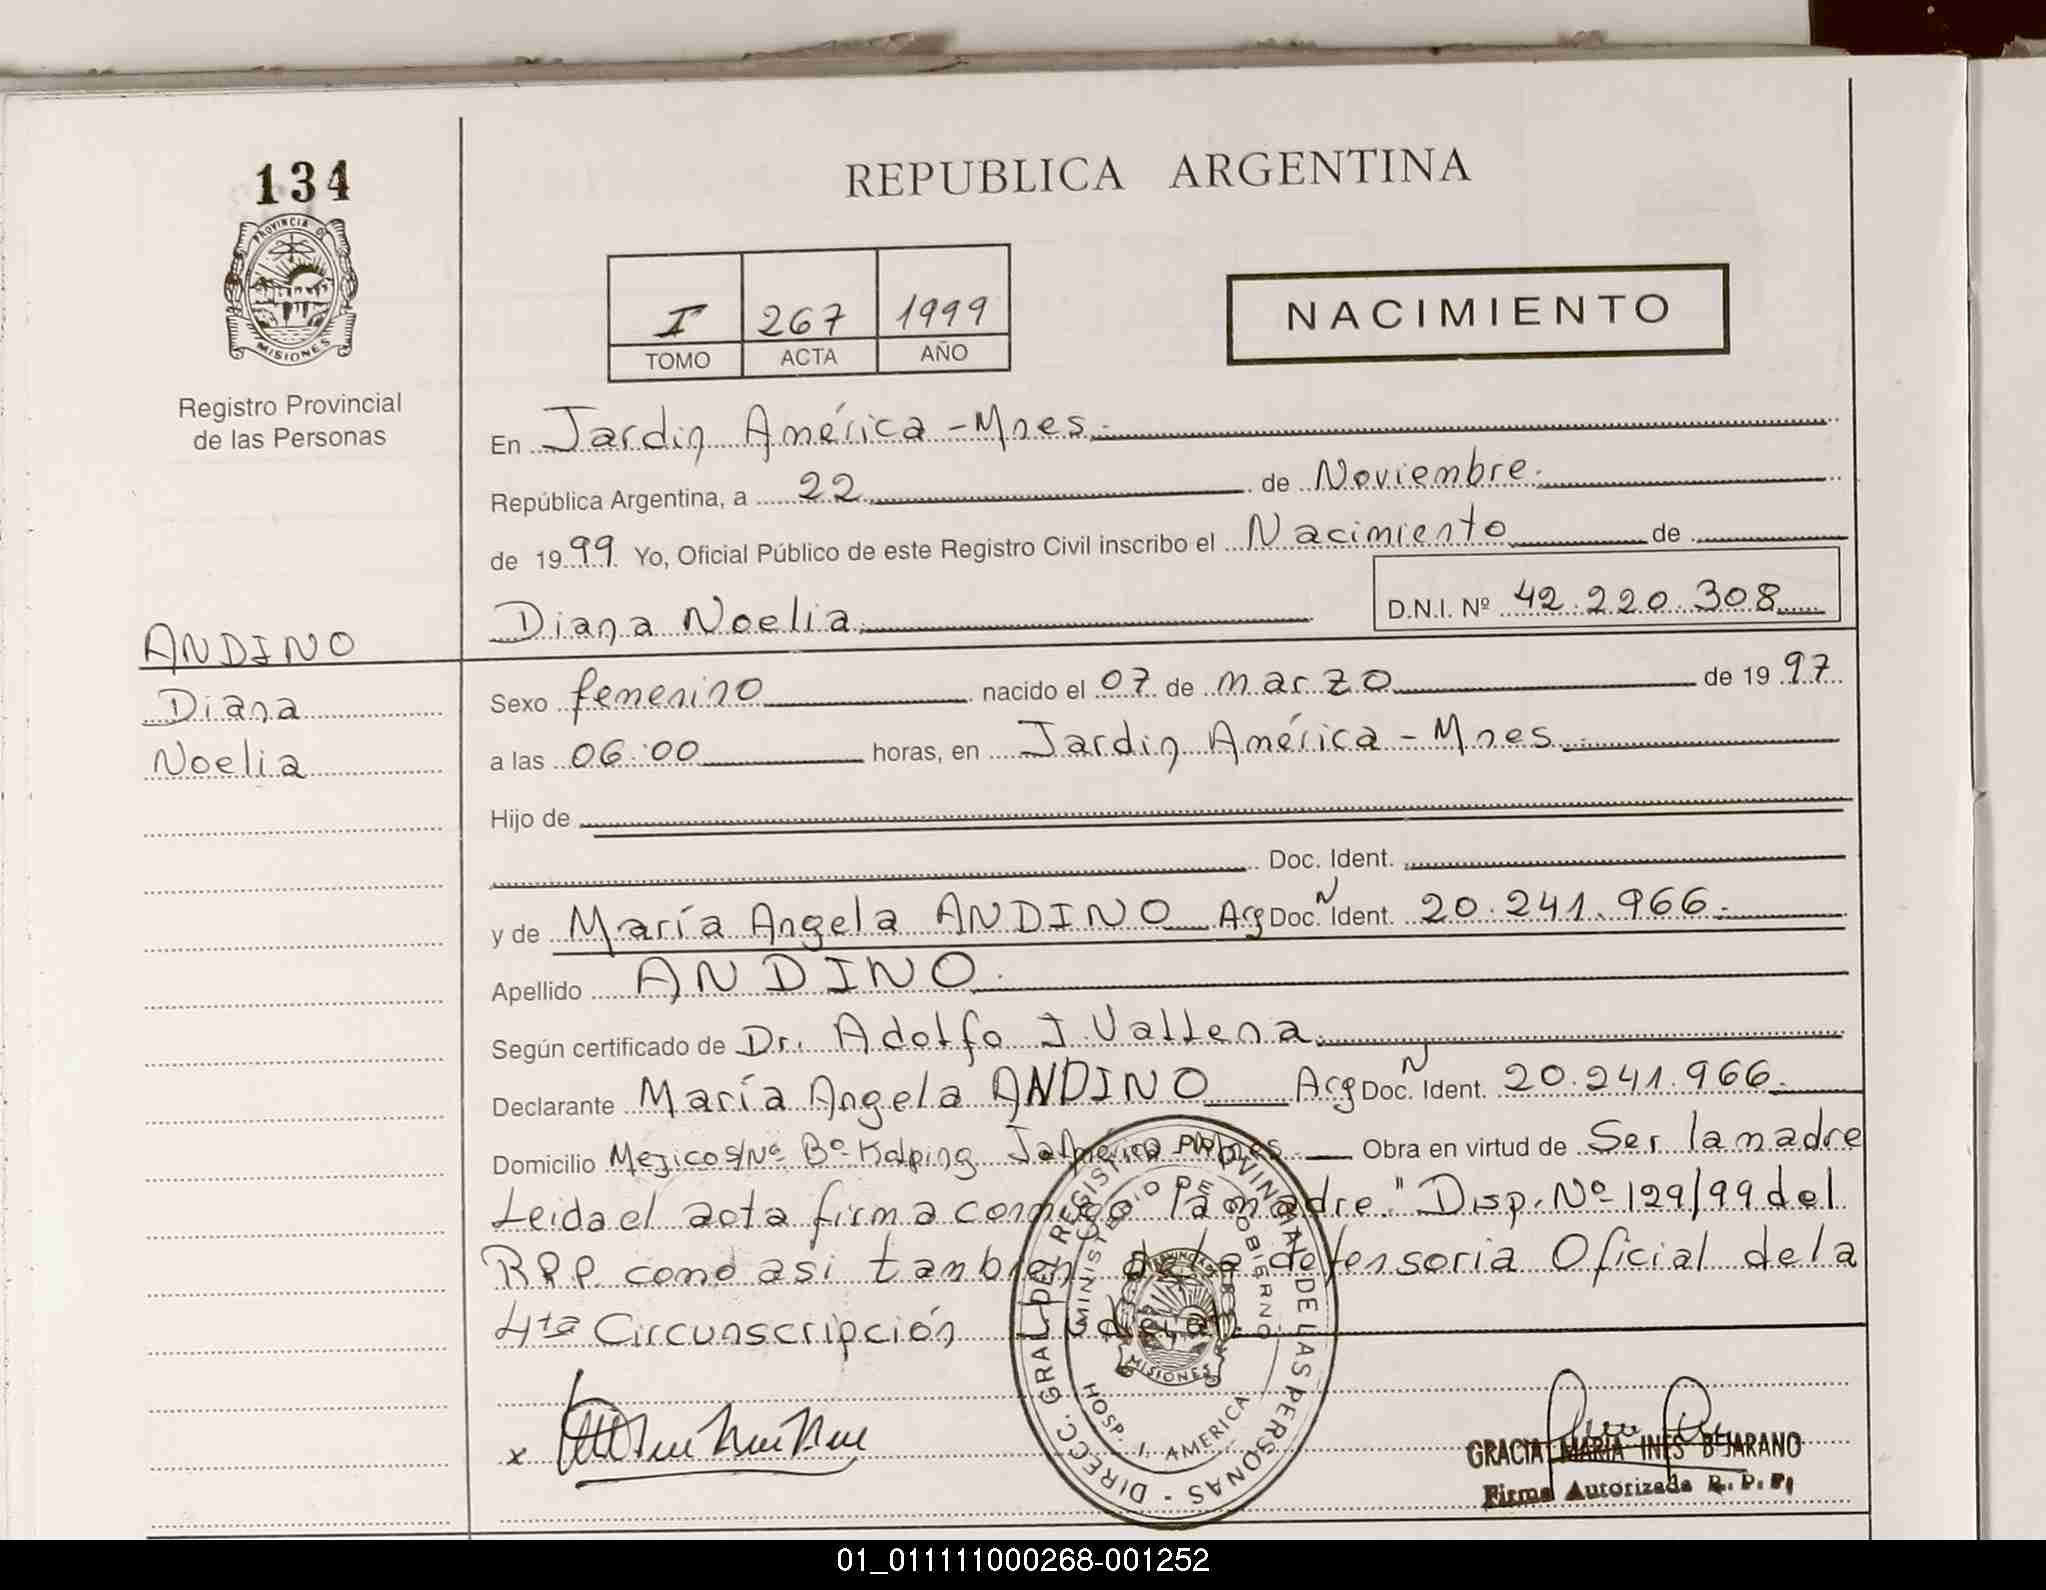 134
PROVINCIA DE
MISIONES
Registro Provincial
de las Personas
ANDINO
Diana
Noelia
REPUBLICA ARGENTINA
I 267 1999
TOMO ACTA AÑO
NACIMIENTO
En Jardin América - Mnes.
República Argentina, a 22 de Noviembre.
de 1999 Yo, Oficial Público de este Registro Civil inscribo el Nacimiento de
Diana Noelia. D.N.I. Nº 42.220.308
Sexo femenino nacido el 07 de marzo de 1997
a las 06:00 horas, en Jardin América - Mnes.
Hijo de
Doc. Ident.
y de María Angela ANDINO Arg Doc. N Ident. 20.241.966.
Apellido ANDINO.
Según certificado de Dr. Adolfo J. Vallena.
Declarante María Angela ANDINO Arg Doc. N Ident. 20.241.966.
Domicilio Mejico s/Nº Bº Kolping Obra en virtud de Ser la madre
Leida el acta firma conmigo "la madre." Disp. Nº 129/99 del
RPP como asi tambien de la defensoria Oficial de la
4ta Circunscripción Judicial.
x
DIRECC. GRAL. DEL REGISTRO PROVINCIAL DE LAS PERSONAS -
MINISTERIO DE GOBIERNO
HOSP. J. AMERICA
MISIONES
GRACIA MARIA INES BEJARANO
Firma Autorizada R. P. P.
01_011111000268-001252